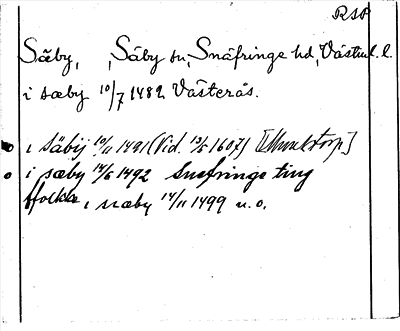 RSP
Säby, Säby sn, Snäfringe hd, Västml. l.
i sæby 10/7 1482 Västerås.
i säbij 10/11 1491 (Vid. 13/5 1607) [Munktorp]
i sæby 14/6 1492 Snefringe ting
ffolka, i næby 14/11 1499 u. o.